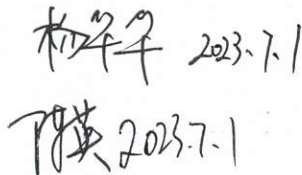 2023.7.1
陈英 2023.7.1